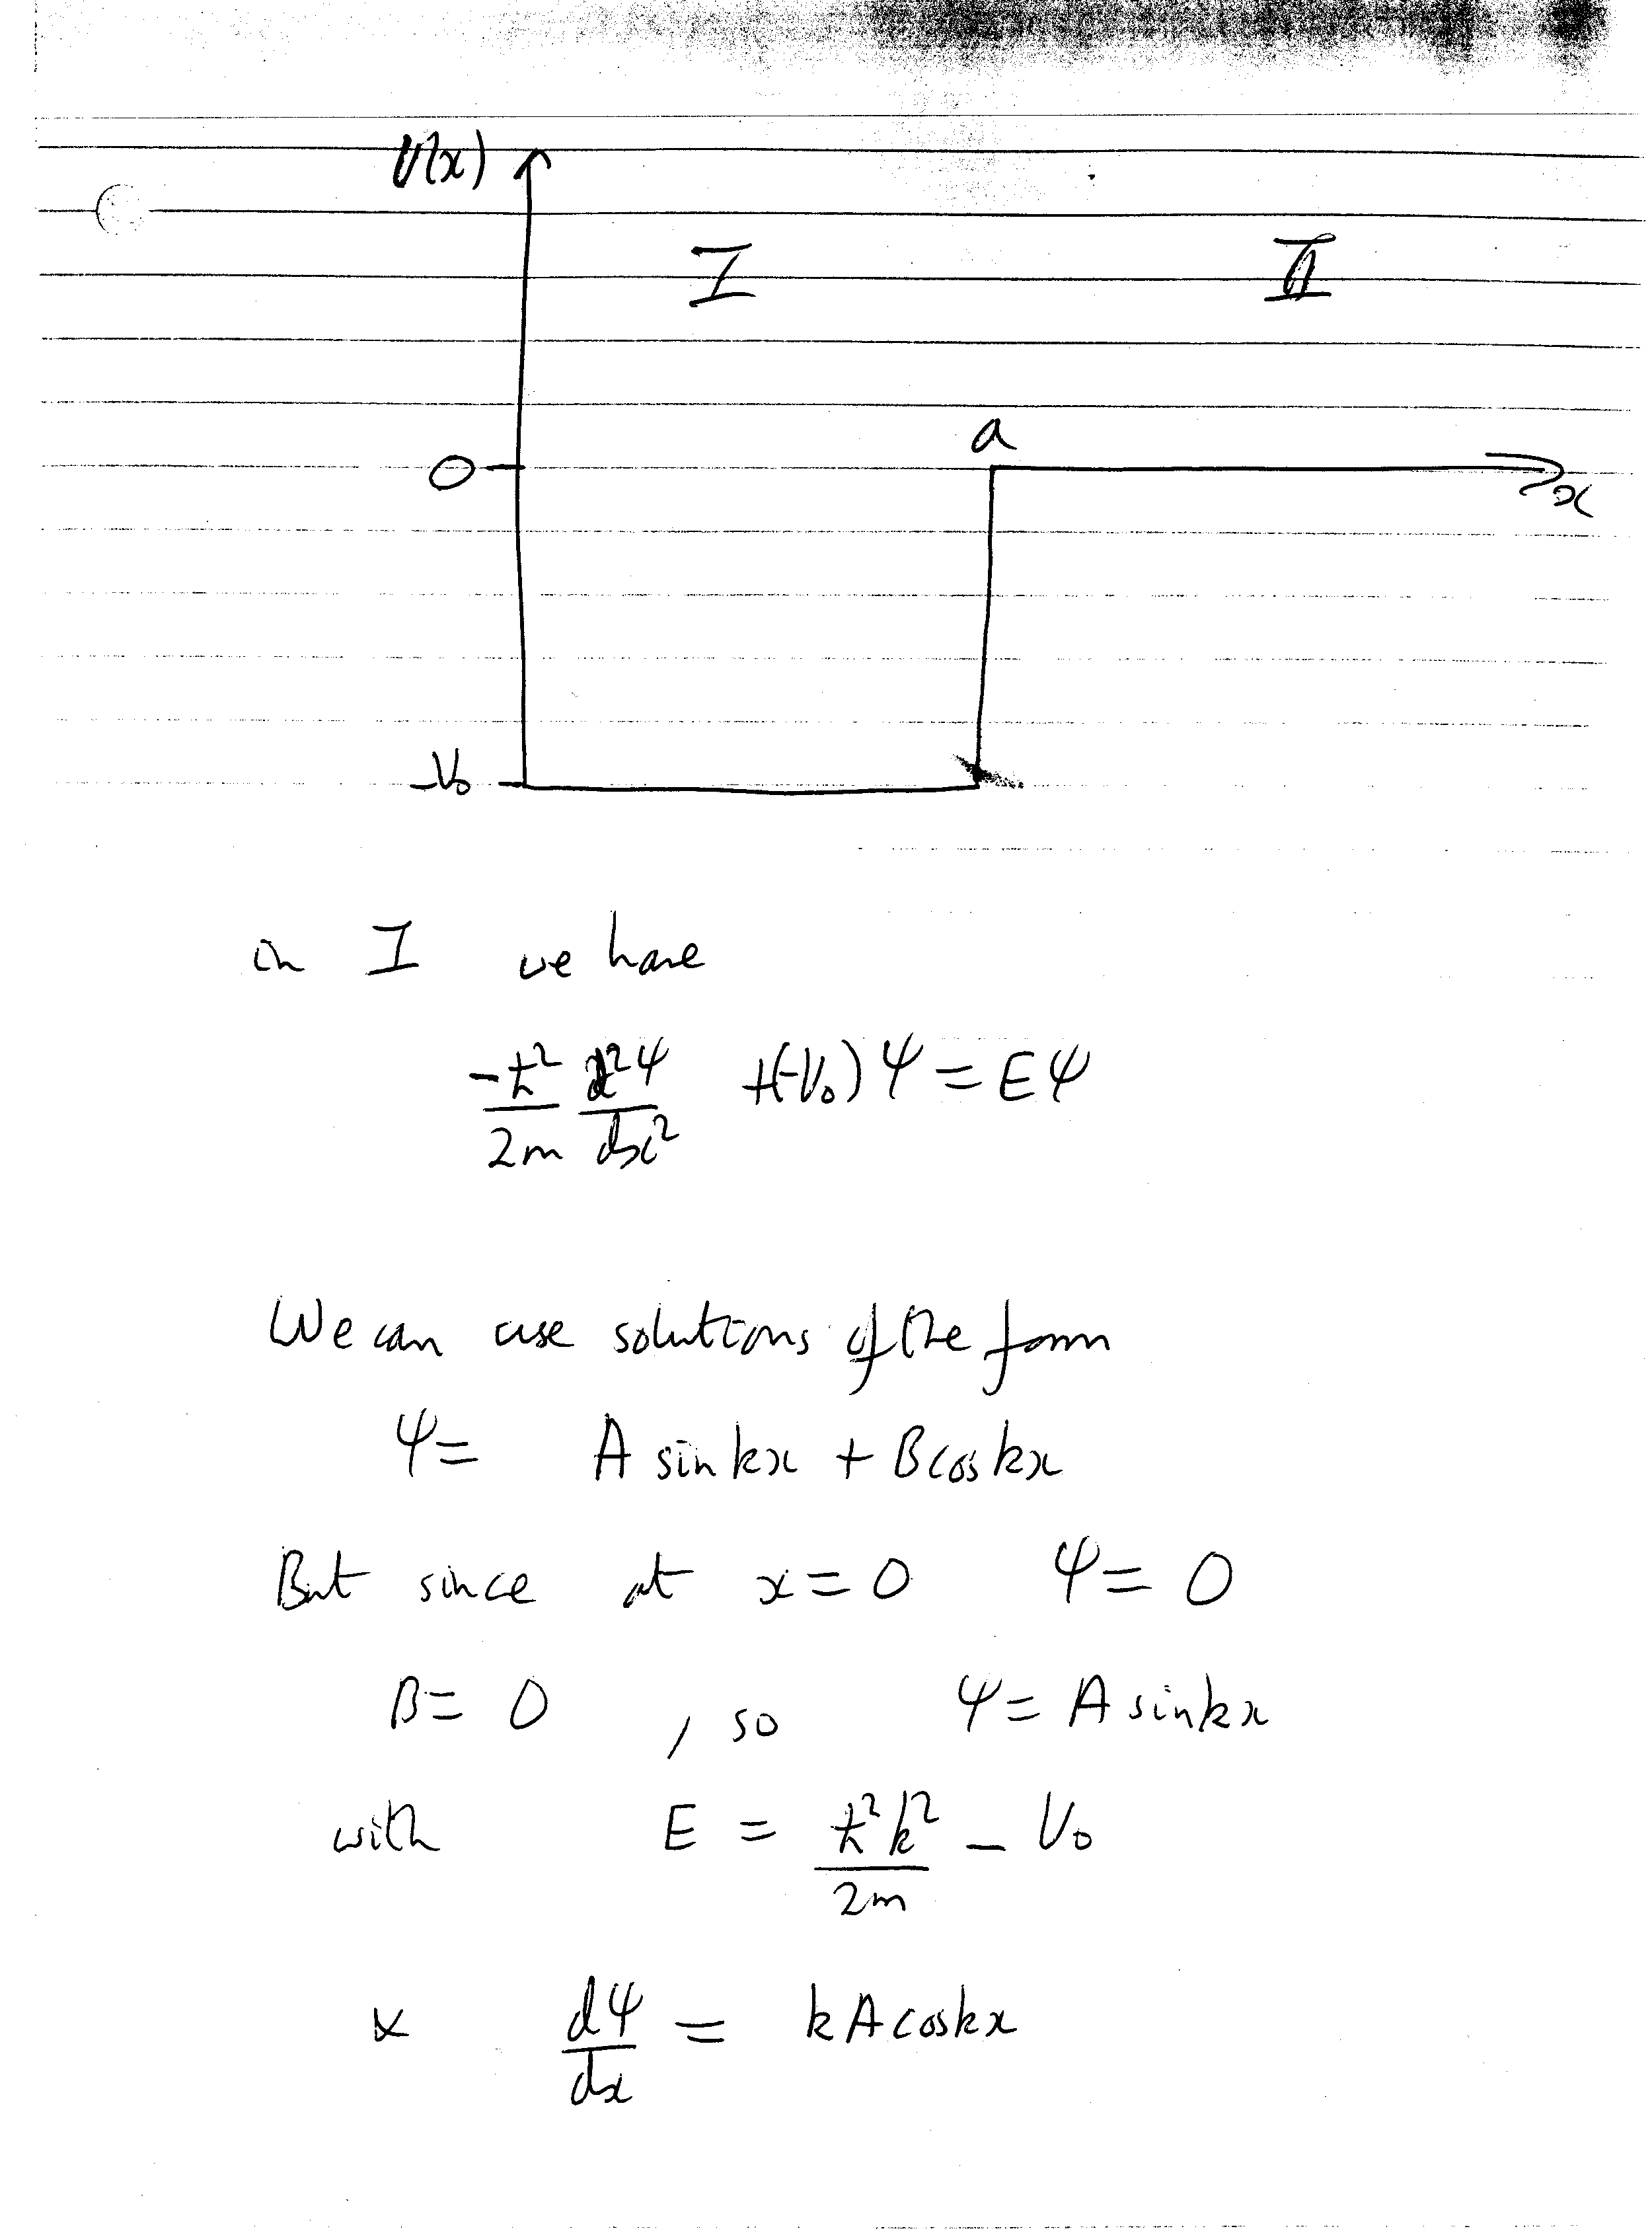 V(x)
I II
a
0
x
-V₀
in I we have
-ħ²/2m d²Ψ/dx² +(-V₀)Ψ = EΨ
We can use solutions of the form
Ψ = A sin kx + B cos kx
But since at x = 0 Ψ = 0
B = 0 , so Ψ = A sin kx
with E = ħ²k²/2m - V₀
& dΨ/dx = kA cos kx